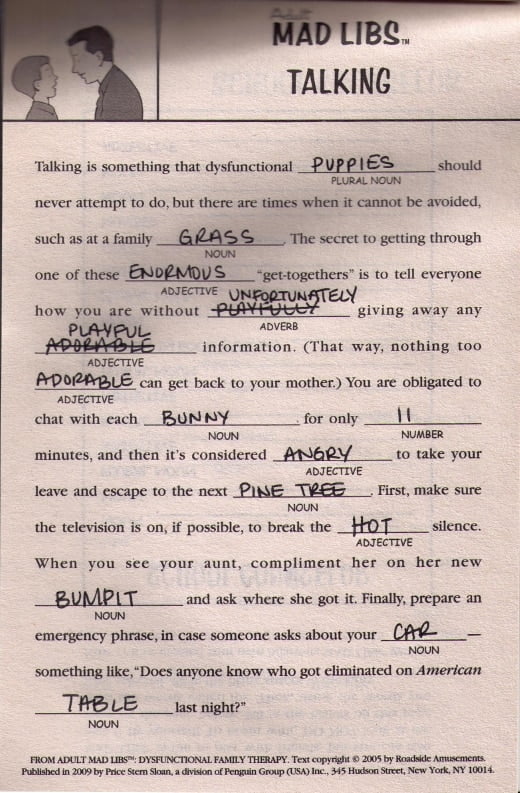 ADULT
MAD LIBS™
TALKING
Talking is something that dysfunctional PUPPIES should
PLURAL NOUN
never attempt to do, but there are times when it cannot be avoided,
such as at a family GRASS. The secret to getting through
NOUN
one of these ENORMOUS "get-togethers" is to tell everyone
ADJECTIVE UNFORTUNATELY
how you are without PLAYFULLY giving away any
PLAYFUL ADVERB
ADORABLE information. (That way, nothing too
ADJECTIVE
ADORABLE can get back to your mother.) You are obligated to
ADJECTIVE
chat with each BUNNY for only 11
NOUN NUMBER
minutes, and then it's considered ANGRY to take your
ADJECTIVE
leave and escape to the next PINE TREE. First, make sure
NOUN
the television is on, if possible, to break the HOT silence.
ADJECTIVE
When you see your aunt, compliment her on her new
BUMPIT and ask where she got it. Finally, prepare an
NOUN
emergency phrase, in case someone asks about your CAR—
NOUN
something like, "Does anyone know who got eliminated on American
TABLE last night?"
NOUN
FROM ADULT MAD LIBS™: DYSFUNCTIONAL FAMILY THERAPY. Text copyright © 2005 by Roadside Amusements.
Published in 2009 by Price Stern Sloan, a division of Penguin Group (USA) Inc., 345 Hudson Street, New York, NY 10014.